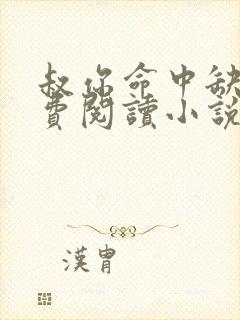 叔你命中缺
費閱讀小說
漢胄